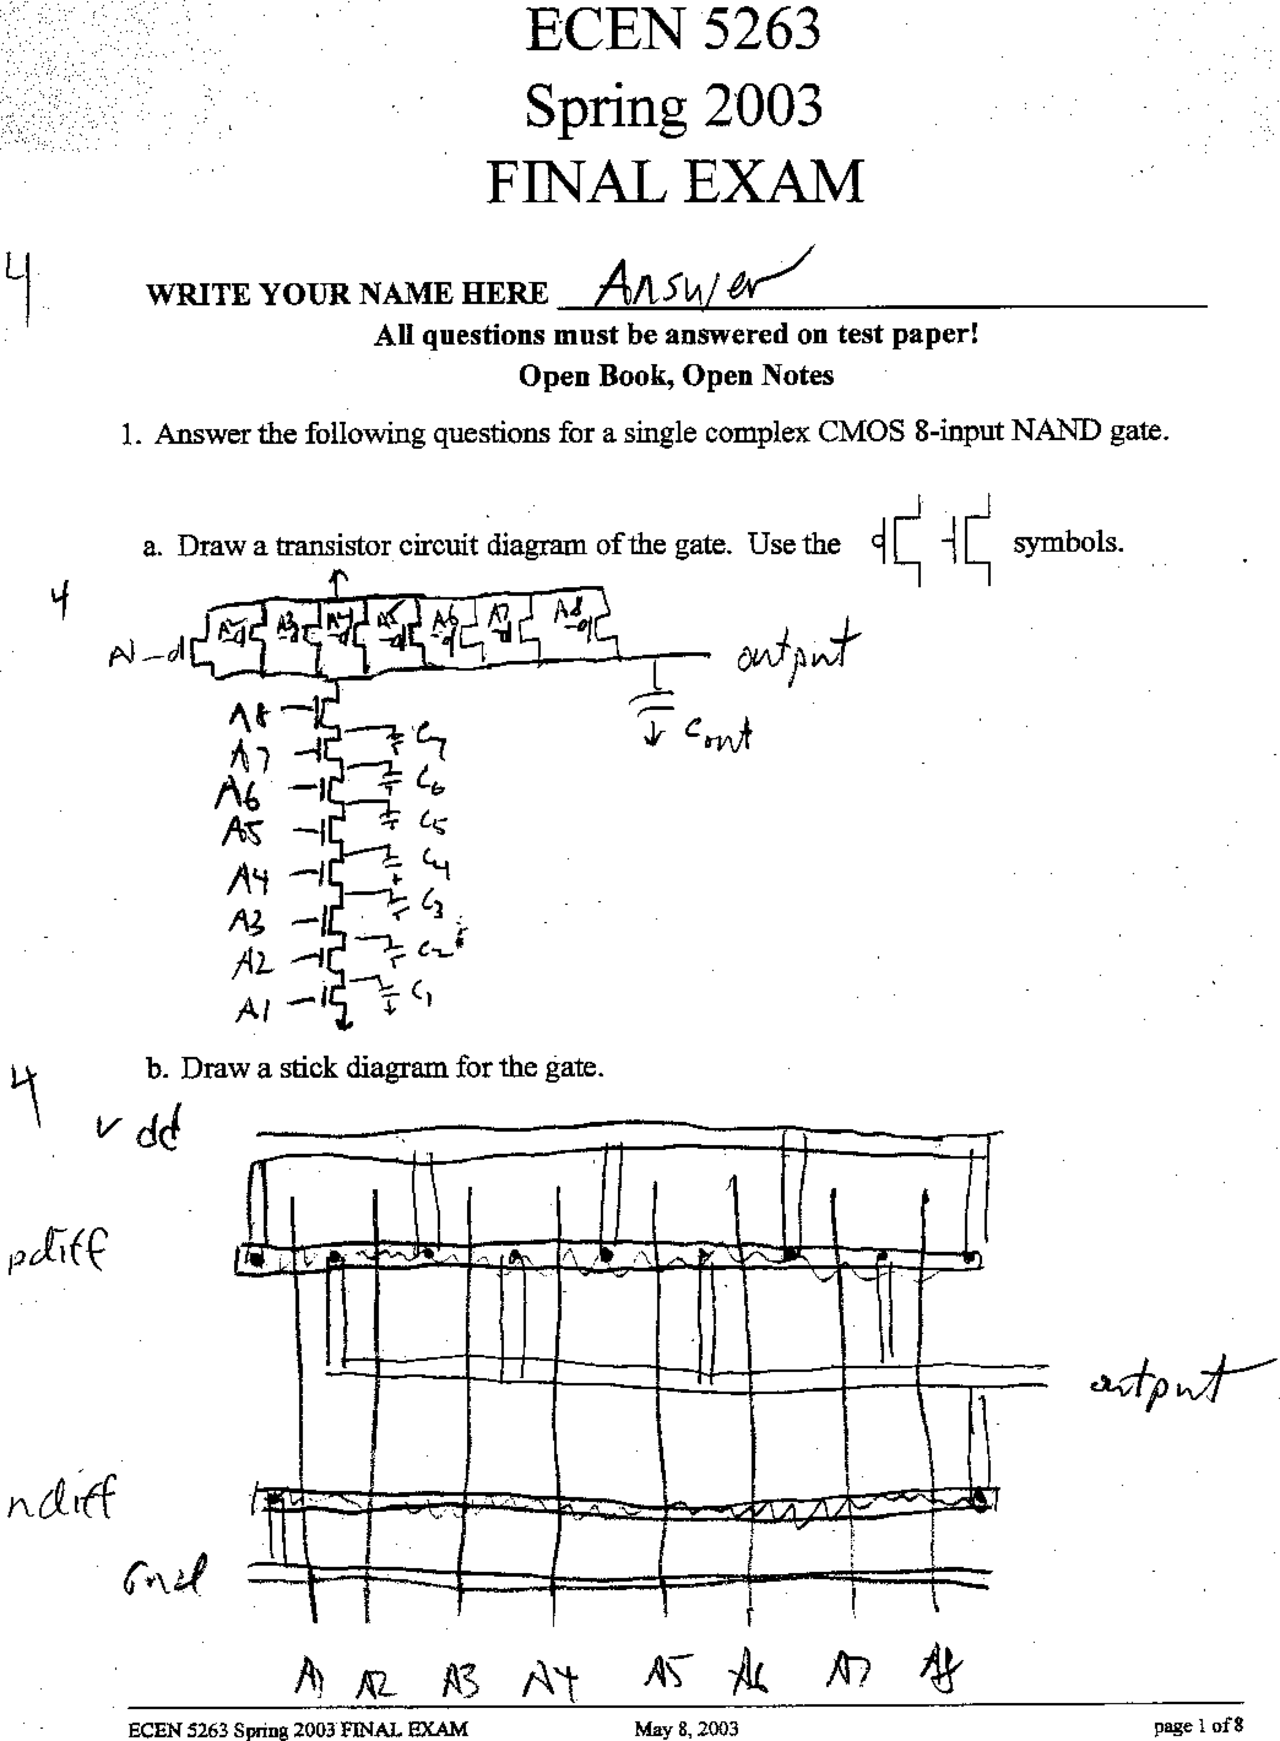 ECEN 5263
Spring 2003
FINAL EXAM
4
WRITE YOUR NAME HERE Answer
All questions must be answered on test paper!
Open Book, Open Notes
1. Answer the following questions for a single complex CMOS 8-input NAND gate.
a. Draw a transistor circuit diagram of the gate. Use the symbols.
4
A1 A2 A3 A4 A5 A6 A7 A8
output
Cout
A8
A7 C7
A6 C6
A5 C5
A4 C4
A3 C3
A2 C2
A1 C1
b. Draw a stick diagram for the gate.
4
Vdd
pdiff
output
ndiff
Gnd
A1 A2 A3 A4 A5 A6 A7 A8
ECEN 5263 Spring 2003 FINAL EXAM May 8, 2003 page 1 of 8